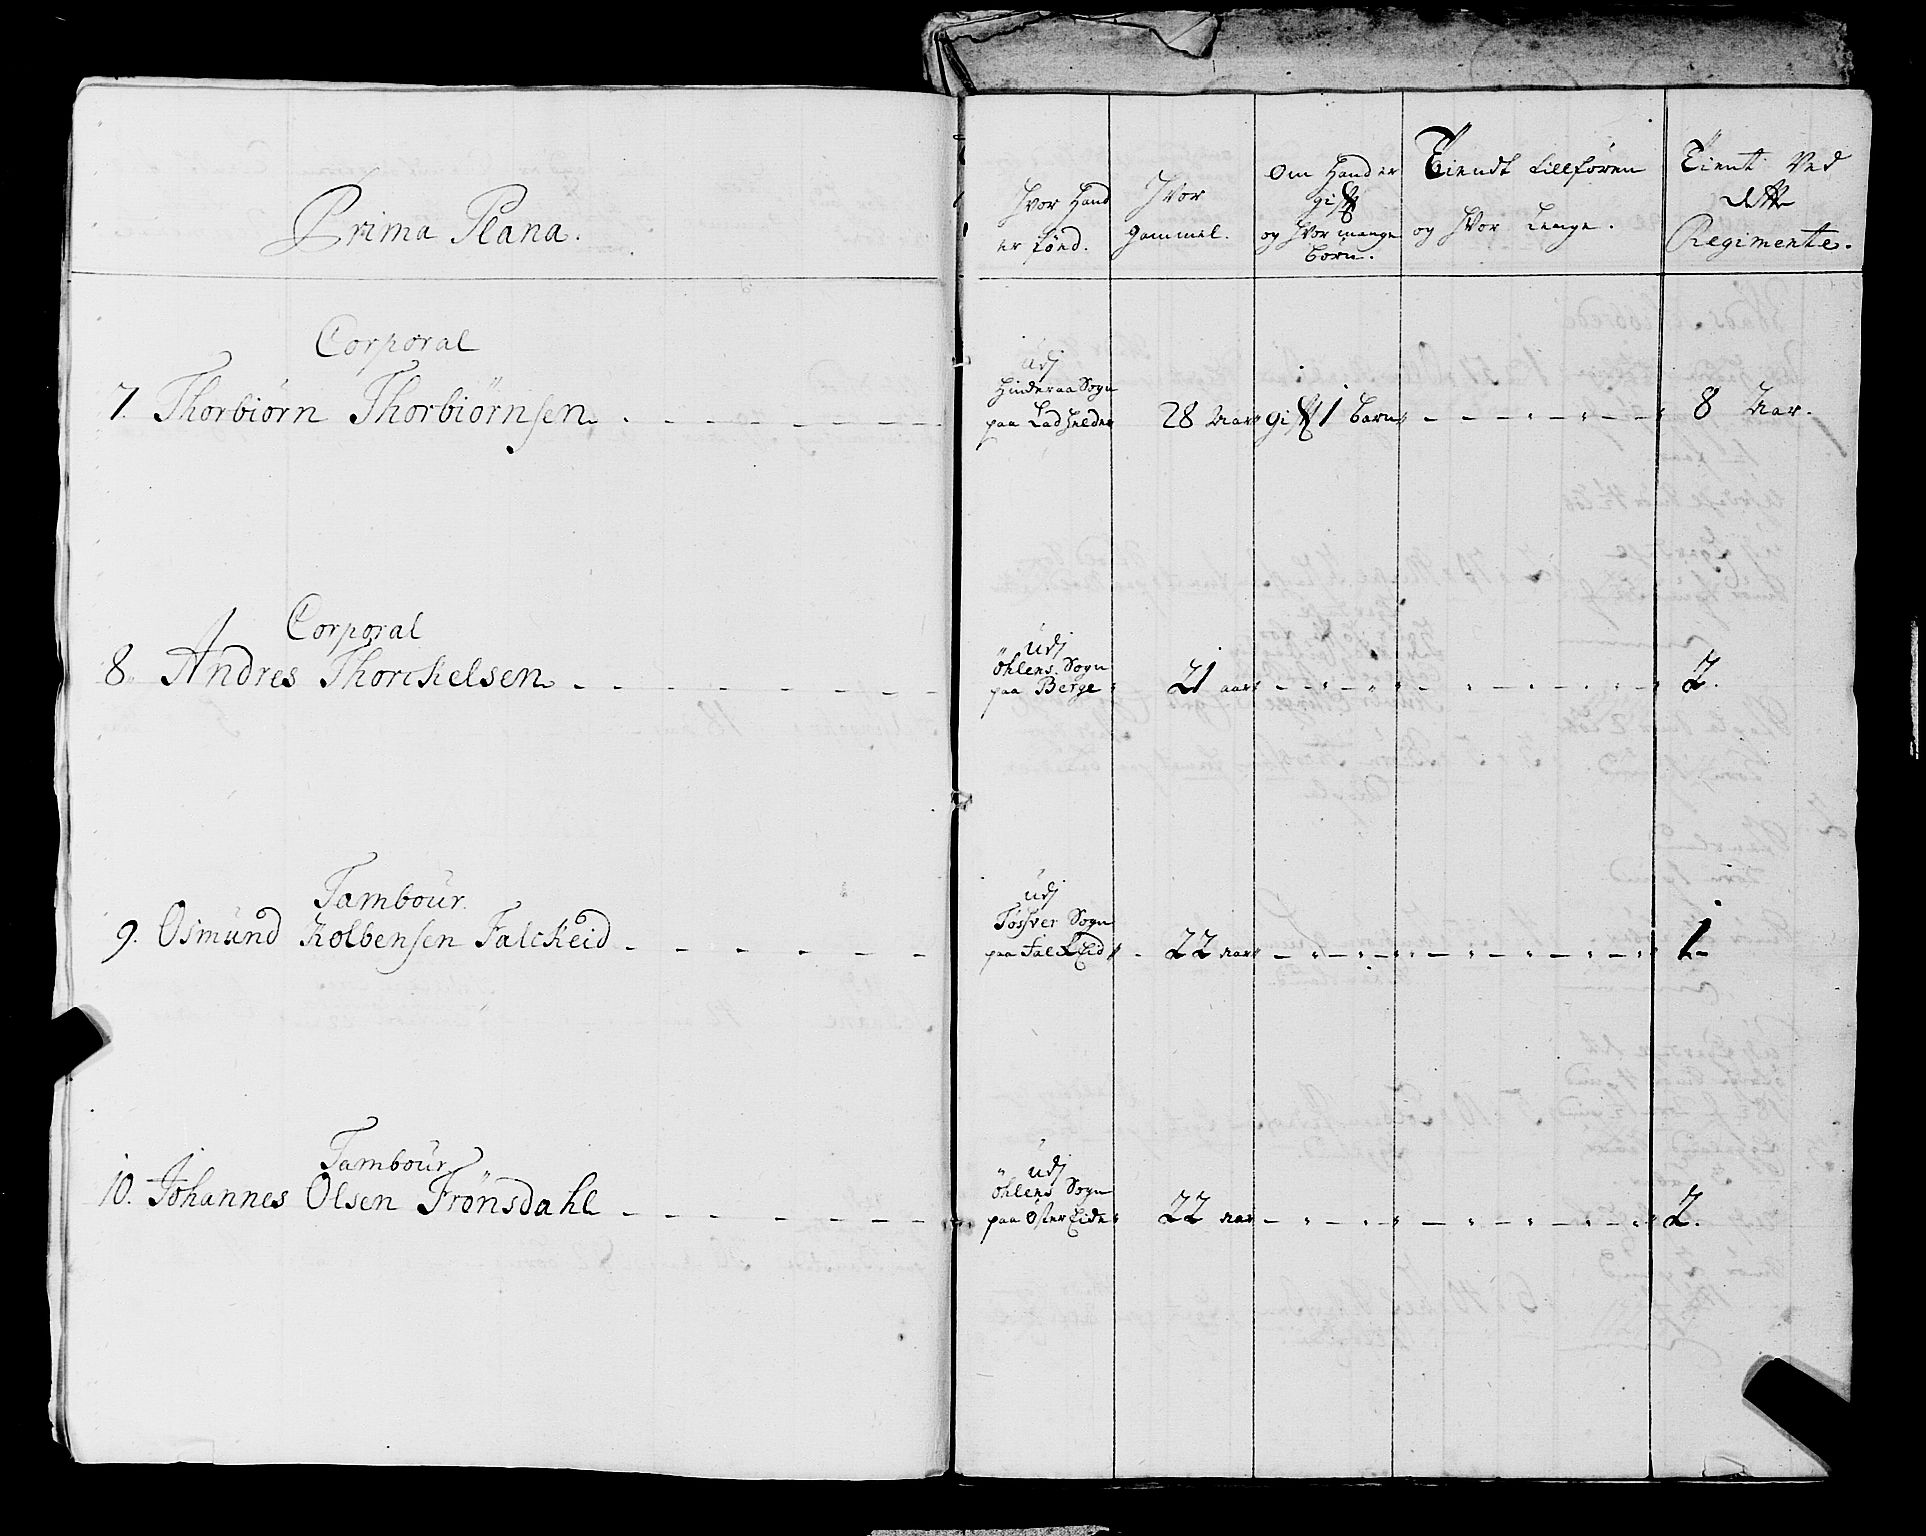 Prima Plana.
Hvor Hand
er fönd.
Hvor
Gammel.
Om Hand er
gift
og Hvor mange
börn.
Tiendt tillforen
og Hvor Lenge.
Tient Ved
dette
Regimente.
Corporal
7. Thorbiörn Thorbiörnsen.
Udj
Hinderaa Sogn
paa
28 Aar
gift 1 barn
8 Aar.
Corporal
8. Andres Thorckelsen
Udj
Öhlens Sogn
paa Berge
21 aar
2.
Tambour.
9. Osmund Kolbensen Falckeid
Udj
Sogn
paa FalckEid
22 aar
1
Tambour
10. Johannes Olsen Frönsdahl
Udj
Öhlens Sogn
paa ÖsterEide
22 aar
2.